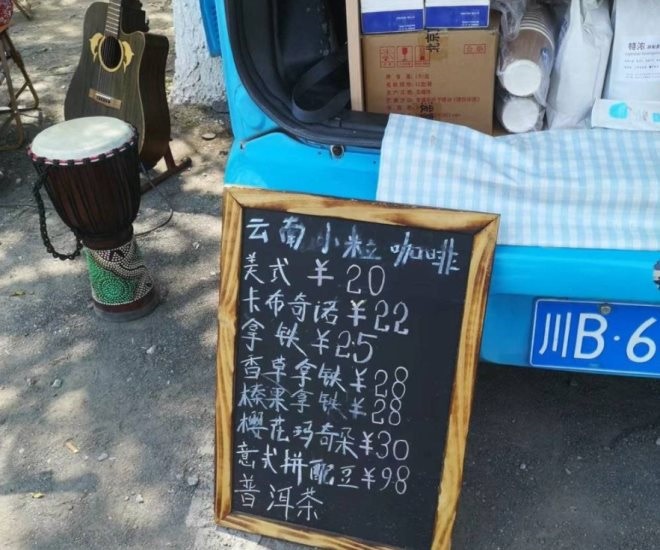 云南小粒咖啡
美式 ¥20
卡布奇诺 ¥22
拿铁 ¥25
香草拿铁 ¥28
榛果拿铁 ¥28
樱花玛奇朵 ¥30
意式拼配豆 ¥98
普洱茶
川B·6
北京
特浓